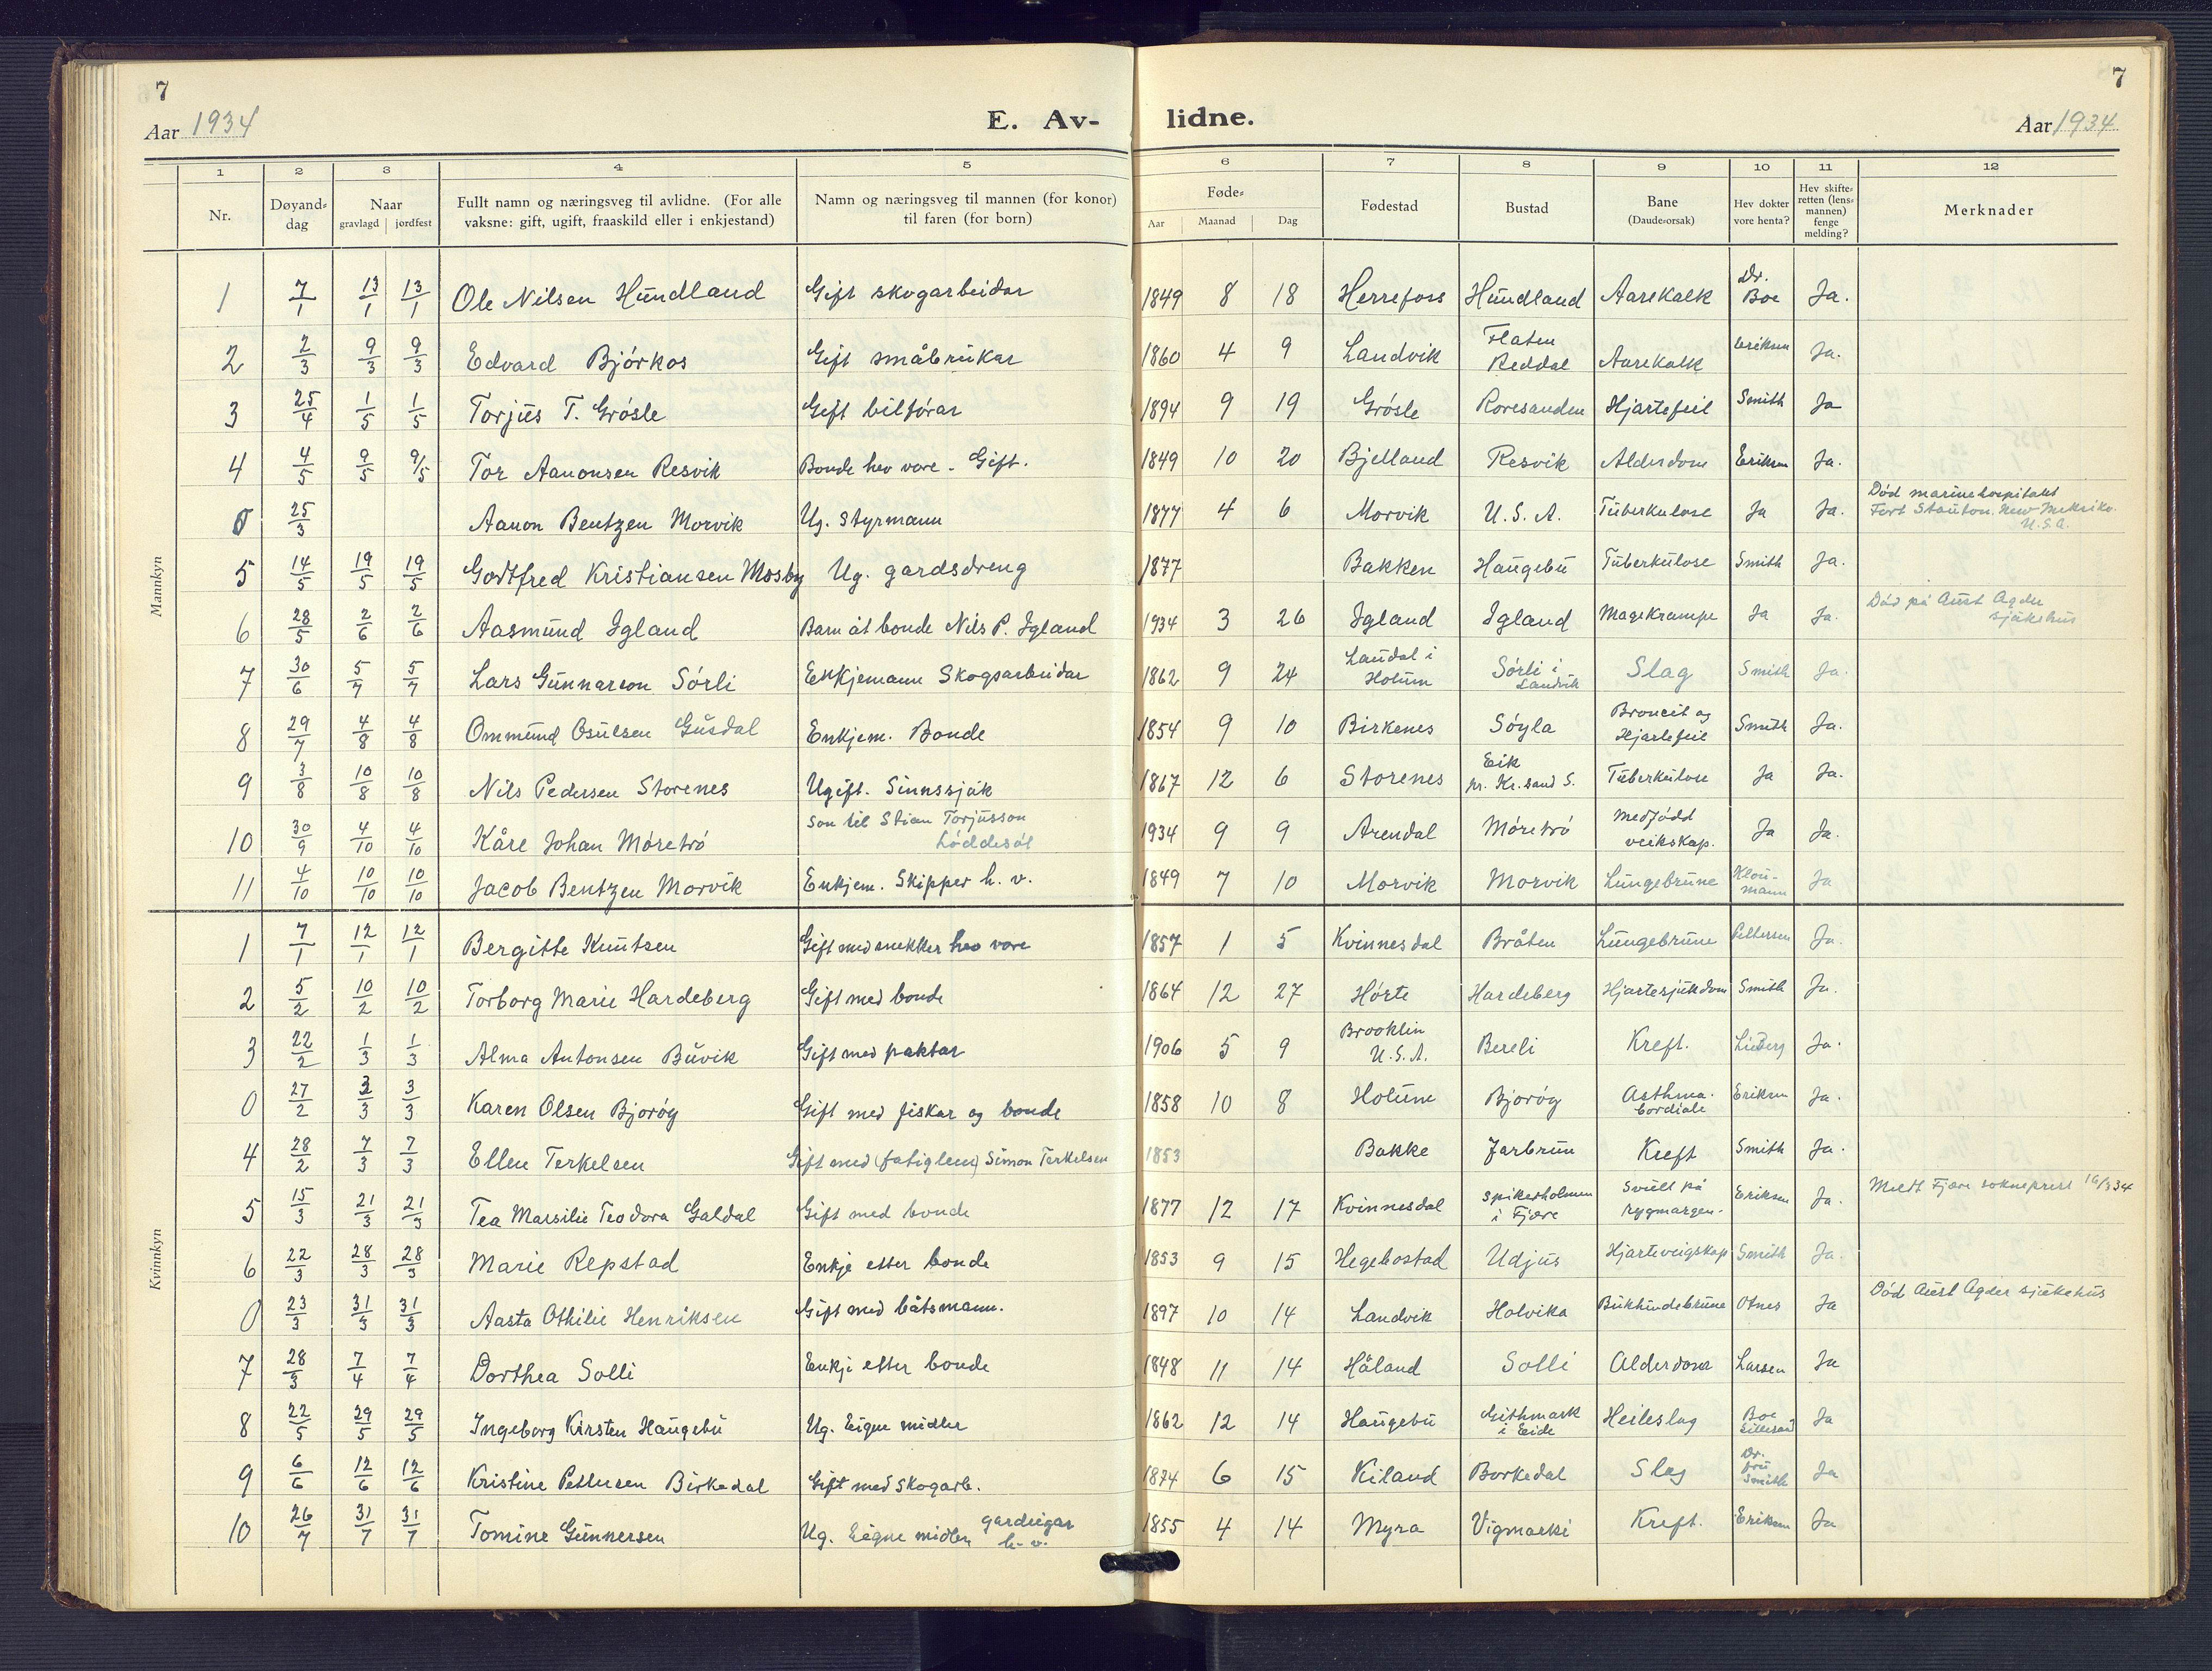 7
7
Aar 1934
E. Av-
lidne.
Aar 1934
1 2 3 4 5 6 7 8 9 10 11 12
Nr. Døyand-dag Naar gravlagd jordfest Fullt namn og næringsveg til avlidne. (For alle vaksne: gift, ugift, fraaskild eller i enkjestand) Namn og næringsveg til mannen (for konor) til faren (for born) Føde- Aar Maanad Dag Fødestad Bustad Bane (Daude-orsak) Hev dokter vore henta? Hev skifte-retten (lens-mannen) fenge melding? Merknader
Mannkyn
1 7/1 13/1 13/1 Ole Nilsen Hundland Gift skogarbeidar 1849 8 18 Herrefoss Hundland Aarekalk Dr. Boe Ja.
2 2/3 9/3 9/3 Edvard Bjórkos Gift småbrukar 1860 4 9 Landvik Flaten Reddal Aarekalk Eriksen Ja.
3 25/4 1/5 1/5 Torjus T. Grósle Gift bilfórar 1894 9 19 Grósle Roresanden Hjartefeil Smith Ja
4 4/5 9/5 9/5 Tor Aanonsen Resvik Bonde hev vore - Gift. 1849 10 20 Bjelland Resvik Alderdom Eriksen Ja.
0 25/3 Aanon Bentzen Morvik Ug. Styrmann 1877 4 6 Morvik U.S.A. Tuberkulose Ja Ja. Død marinehospitalet Fort Stanton. New Meksiko. U.S.A.
5 14/5 19/5 19/5 Godtfred Kristiansen Mosby Ug. gardsdreng 1877 Bakken Haugebu Tuberkulose Smith Ja.
6 28/5 2/6 2/6 Aasmund Igland Barn åt bonde Nils P. Igland 1934 3 26 Igland Igland Magekrampe Ja Ja. Død på Aust Agder sjukehus
7 30/6 5/7 5/7 Lars Gunnarson Sórli Enkjemann Skogsarbeidar 1862 9 24 Laudal i Holum Sórli i Landvik Slag Smith Ja.
8 29/7 4/8 4/8 Ommund Osulsen Gusdal Enkjem. Bonde 1854 9 10 Birkenes Sóyla Broncit og Hjartefeil Smith Ja.
9 3/8 10/8 10/8 Nils Pedersen Storenes Ugift. Sinnssjuk 1867 12 6 Storenes Eik pr. Kr.sand S. Tuberkulose Ja Ja.
10 30/9 4/10 4/10 Kåre Johan Móretró son til Stian Torjusson Lóddesól 1934 9 9 Arendal Móretró medfódd veikskap. Ja Ja.
11 4/10 10/10 10/10 Jacob Bentzen Morvik Enkjem. Skipper h. v. 1849 7 10 Morvik Morvik Lungebrune Klou-mann Ja
Kvinnkyn
1 7/1 12/1 12/1 Bergitte Knutsen Gift med snekker hev vore 1857 1 5 Kvinnesdal Bråten Lungebrune Pettersen Ja.
2 5/2 10/2 10/2 Torborg Marie Hardeberg Gift med bonde 1864 12 27 Hórte Hardeberg Hjartesjukdom Smith Ja.
3 22/2 1/3 1/3 Alma Antonsen Buvik Gift med paktar 1906 5 9 Brooklin U.S.A. Bereli Kreft. Ja.
0 27/2 3/3 3/3 Karen Olsen Bjoróy Gift med fiskar og bonde 1858 10 8 Holum Bjoróy Asthma. Cordiale Eriksen Ja.
4 28/2 7/3 7/3 Ellen Terkelsen Gift med (fatiglem) Simon Terkelsen 1853 Bakke Jarbrun Kreft Smith Ja.
5 15/3 21/3 21/3 Tea Marsilie Teodora Galdal Gift med bonde 1877 12 17 Kvinnesdal Spikerholmen i Fjære Svull på rygmargen. Eriksen Ja. Meldt Fjære sokneprest 19/3 34
6 22/3 28/3 28/3 Marie Repstad Enkje etter bonde 1853 9 15 Hegebostad Udjus Hjarteveigskap Smith Ja.
0 23/3 31/3 31/3 Aasta Othilie Henriksen Gift med båtsmann. 1897 10 14 Landvik Holvika Bukhindebrune Otnes Ja Död Aust Agder sjukehus
7 28/3 7/4 7/4 Dorthea Solli Enkje etter bonde 1848 11 14 Håland Solli Alderdom Larsen Ja
8 22/5 29/5 29/5 Ingeborg Kirsten Haugebu Ug. Eigne midler 1862 12 14 Haugebu Githmark i Eide Heileslag Boe Lillesand Ja
9 6/6 12/6 12/6 Kristine Pettersen Birkedal Gift med Skogarb. 1874 6 15 Kiland Borkedal Slag Dr. fru Smith Ja
10 26/7 31/7 31/7 Tomine Gunnersen Ug. Eigne midler gardeigar h. v. 1855 4 14 Myra Vigmarki Kreft. Eriksen Ja